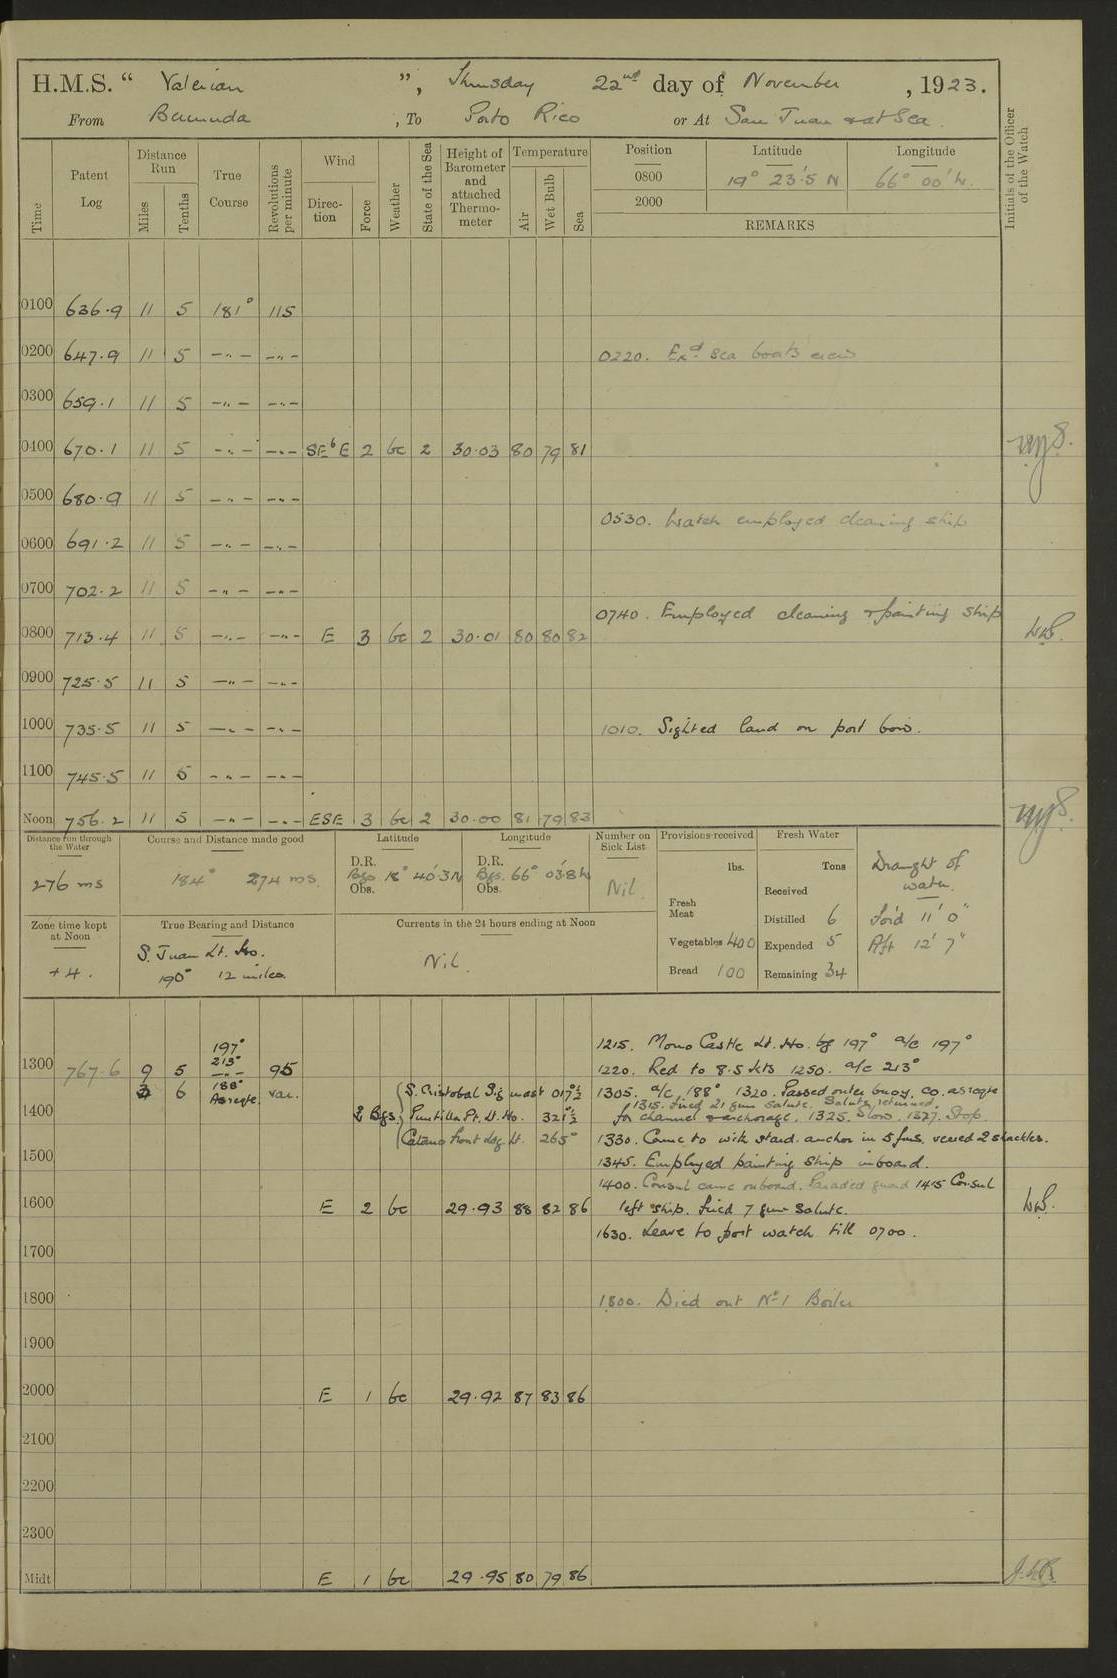 H.M.S. “ Valerian ”, Thursday 22nd day of November, 1923.
From Bermuda, To Porto Rico or At San Juan & at Sea.
Time
Patent Log
Distance Run
Miles
Tenths
True Course
Revolutions per minute
Wind
Direction
Force
Weather
State of the Sea
Height of Barometer and attached Thermometer
Temperature
Air
Wet Bulb
Sea
Position Latitude Longitude
0800 19° 23'.5 N 66° 00' W.
2000
REMARKS
Initials of the Officer of the Watch
0100 636.9 11 5 181° 115
0200 647.9 11 5 —"— —"— 0220. Exd Sea boats crew
0300 659.1 11 5 —"— —"—
0400 670.1 11 5 —"— —"— SE b E 2 bc 2 30.03 80 79 81
0500 680.9 11 5 —"— —"—
0530. Watch employed cleaning ship
0600 691.2 11 5 —"— —"—
0700 702.2 11 5 —"— —"—
0740. Employed cleaning & painting ship
0800 713.4 11 5 —"— —"— E 3 bc 2 30.01 80 80 82
0900 725.5 11 5 —"— —"—
1000 735.5 11 5 —"— —"— 1010. Sighted land on port bow.
1100 745.5 11 5 —"— —"—
Noon 756.2 11 5 —"— —"— ESE 3 bc 2 30.00 81 79 83
Distance run through the Water
276 ms
Course and Distance made good
184° 274 ms.
Latitude
D.R. Bgs Obs. 18° 40'.3 N
Longitude
D.R. Bgs. Obs. 66° 03'.8 W
Number on Sick List
Nil.
Provisions received
lbs.
Fresh Meat
Vegetables 400
Bread 100
Fresh Water
Tons
Received
Distilled 6
Expended 5
Remaining 34
Draught of water.
For'd 11' 0"
Aft 12' 7"
Zone time kept at Noon
+4.
True Bearing and Distance
S. Juan Lt. Ho.
190° 12 miles.
Currents in the 24 hours ending at Noon
Nil.
1215. Morro Castle Lt. Ho. bg 197° a/c 197°
1300 767.6 9 5 197° 213° —"— 95
1220. Red to 8.5 kts 1250. a/c 213°
3 6 188° As reqte. var.
1305. a/c 188° 1320. Passed outer buoy. Co. as reqte
1315. fired 21 gun salute. Salute returned.
for channel & anchorage. 1325. Slow. 1327. Stop.
1400 & Bgs. S. Cristobal Sig mast 017°½
Puntilla Pt. Lt. Ho. 321°½
Catano front Ldg. Lt. 265°
1330. Came to with stard. anchor in 5 fms. veered 2 shackles.
1500 1345. Employed painting ship inboard.
1400. Consul came onboard. Paraded guard 1415 Consul
1600 E 2 bc 29.93 88 82 86 left ship. fired 7 gun Salute.
1630. Leave to port watch till 0700.
1700
1800 1800. Died out No 1 Boiler
1900
2000 E 1 bc 29.92 87 83 86
2100
2200
2300
Midt E 1 bc 29.95 80 79 86